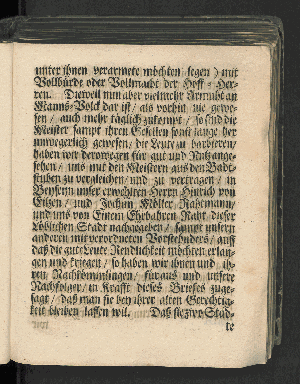 unter ihnen verarmete möchten segen) mit
Vollbürde oder Vollmacht der Hoff-Her-
ren. Dieweil nun aber vielmehr Armuht an
Manns-Volck dar ist / als vorhin nie gewe-
sen / auch mehr täglich zukompt / so sind die
Meister sampt ihren Gesellen sonst lange her
unwegerlich gewesen / die Leute zu barbieren /
haben wir derowegen für gut und Nutz ange-
sehen / uns mit den Meistern auß den Badt-
stuben zu vergleichen / und zu vertragen / in
Beyseyn unser erwehlten Herrn Hinrich von
Eitzen / und Jochim Möller Rahtmann /
und uns von Einem Ehrbahren Raht dieser
Löblichen Stadt nachgegeben / sampt unsern
andern mit verordneten Vorstehnders / auff
daß die gute Leute Rendlichkeit möchten erlan-
gen und kriegen / so haben wir ihnen und ih-
ren Nachkömmlingen / für uns und unsere
Nachfolger / in Krafft dieses Brieses zuge-
sagt / daß man sie bey ihrer alten Gerechtig-
keit bleiben lassen wil. Daß sie zwo Städ-
te